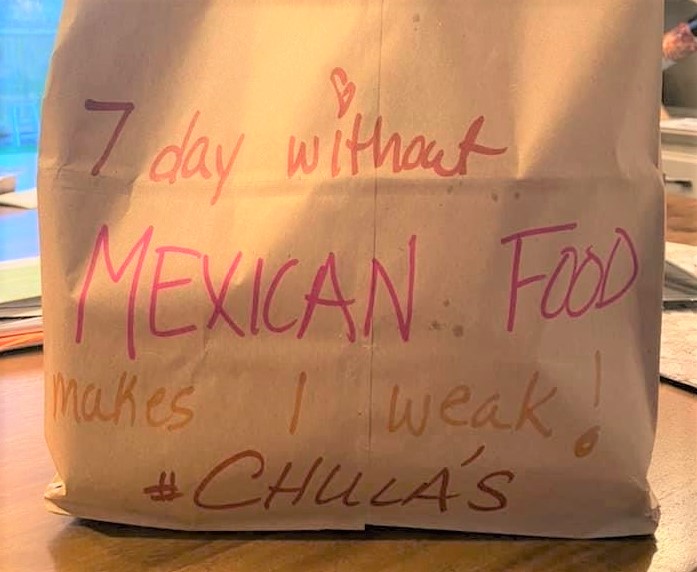 7 day without
MEXICAN FOOD
makes 1 weak!
#CHULA'S